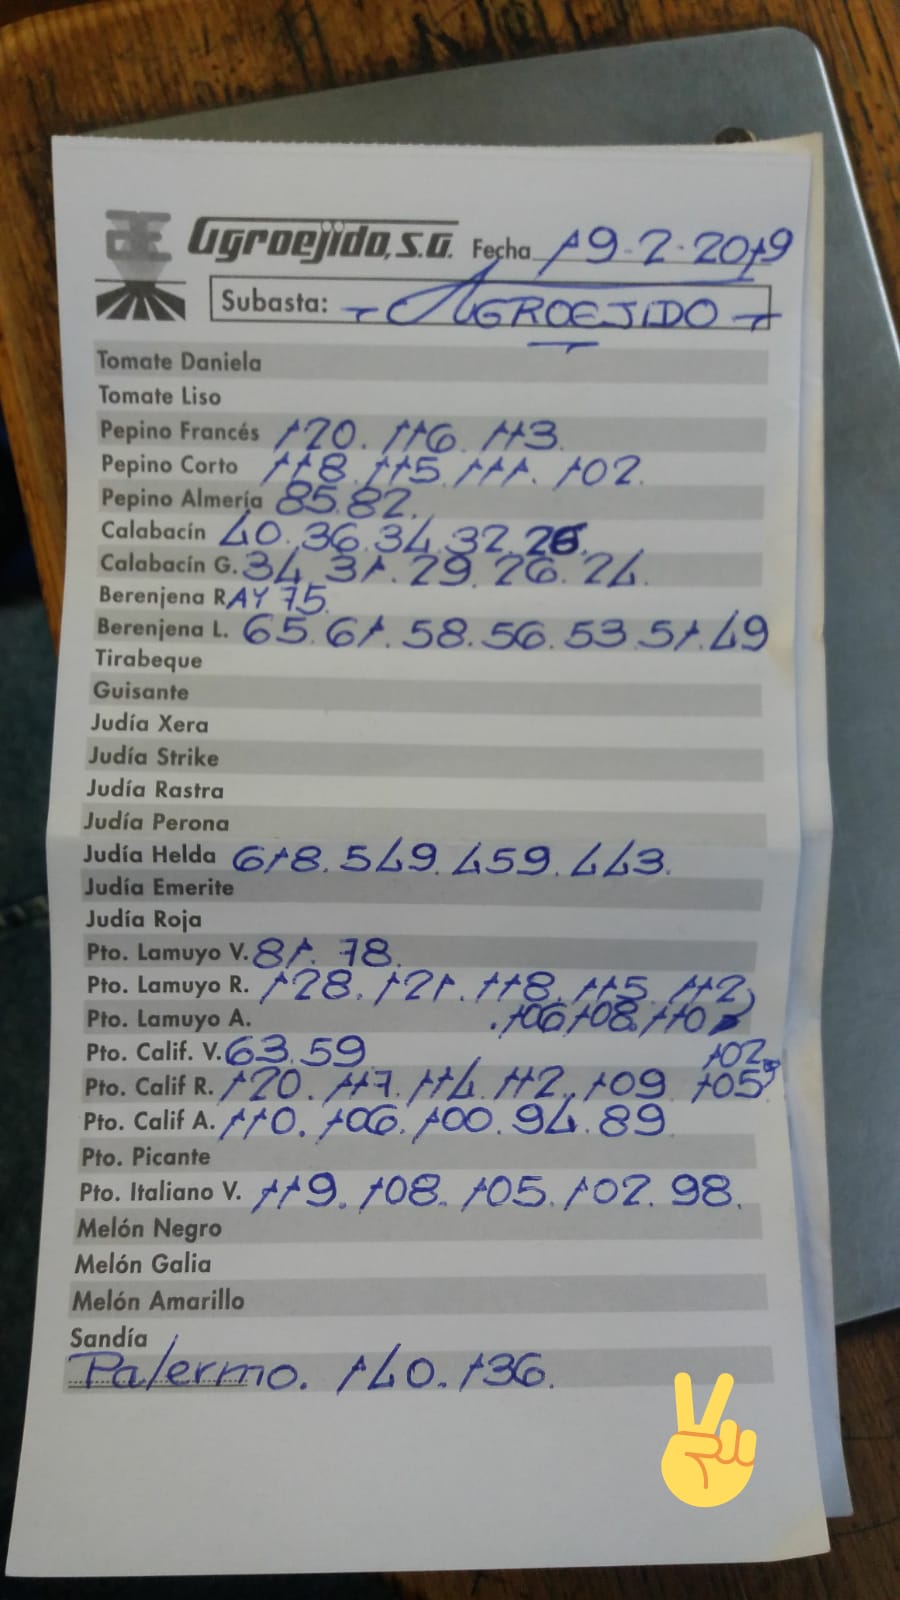 Agroejido, S.A. Fecha 19-2-2019
Subasta: AGROEJIDO
Tomate Daniela
Tomate Liso
Pepino Francés 120. 116. 113.
Pepino Corto 118. 115. 111. 102.
Pepino Almería 85. 82.
Calabacín 40. 36. 34. 32. 26.
Calabacín G. 34. 31. 29. 26. 24.
Berenjena RAY 75.
Berenjena L. 65. 61. 58. 56. 53. 51. 49
Tirabeque
Guisante
Judía Xera
Judía Strike
Judía Rastra
Judía Perona
Judía Helda 618. 549. 459. 443.
Judía Emerite
Judía Roja
Pto. Lamuyo V. 81. 78.
Pto. Lamuyo R. 128. 121. 118. 115. 112
Pto. Lamuyo A. .106 108. 110
Pto. Calif. V. 63. 59 102
Pto. Calif R. 120. 117. 114. 112. 109 105
Pto. Calif A. 110. 106. 100. 94. 89
Pto. Picante
Pto. Italiano V. 119. 108. 105. 102. 98.
Melón Negro
Melón Galia
Melón Amarillo
Sandía
Palermo. 140. 136.